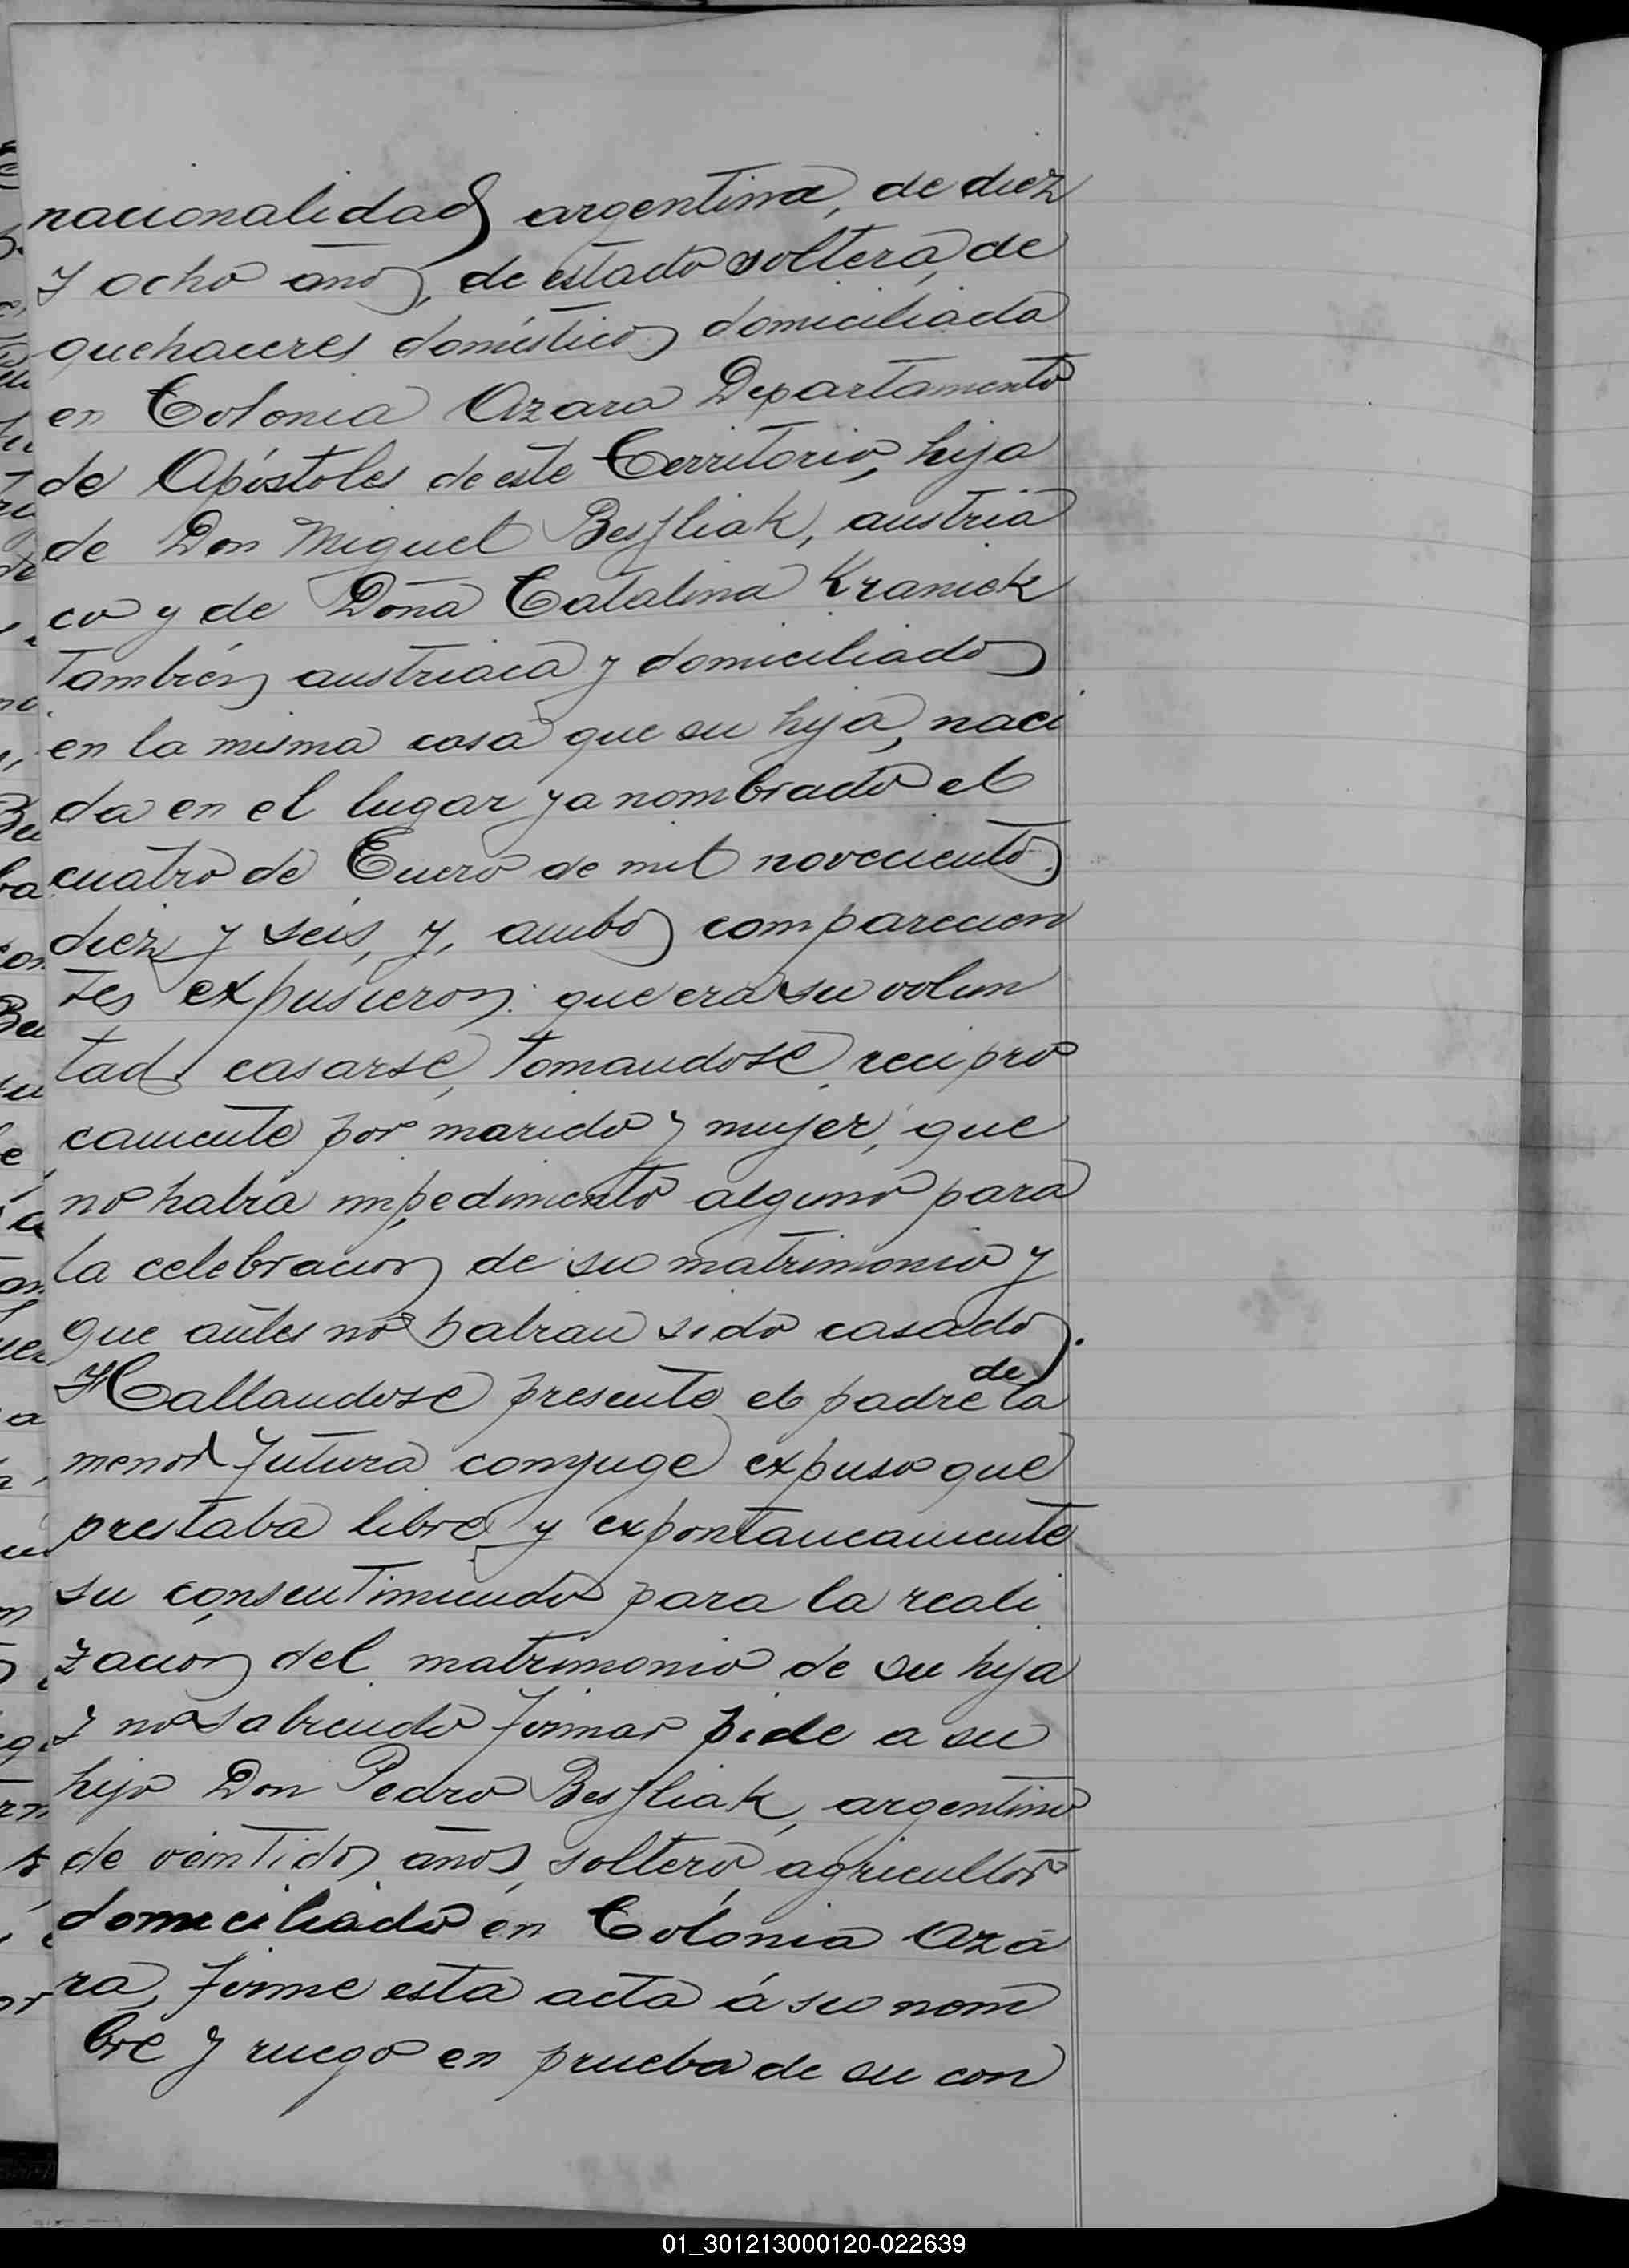 nacionalidad argentina, de diez
y ocho años, de estado soltera, de
quehaceres domésticos domiciliada
en Colonia Azara Departamento
de Apóstoles de este Territorio, hija
de Don Miguel Besfliak, austria
co y de Doña Catalina Kraniek
también austriaca y domiciliados
en la misma casa que su hija, naci
da en el lugar ya nombrado el
cuatro de Enero de mil novecientos
diez y seis, y, ambos comparecien
tes expusieron: que era su volun
tad casarse, tomandose recipro
camente por marido y mujer, que
no habia impedimento alguno para
la celebracion de su matrimonio y
que antes no habian sido casados.
Hallandose presente el padre de la
menor futura conyuge expuso que
prestaba libre y expontaneamente
su consentimiendo para la reali
zacion del matrimonio de su hija
y no sabiendo firmar pide a su
hijo Don Pedro Besfliak, argentino
de veintidos años, soltero, agricultor
domiciliado en Colonia Aza
ra, firme esta acta á su nom
bre y ruego en prueba de su con
01_301213000120-022639